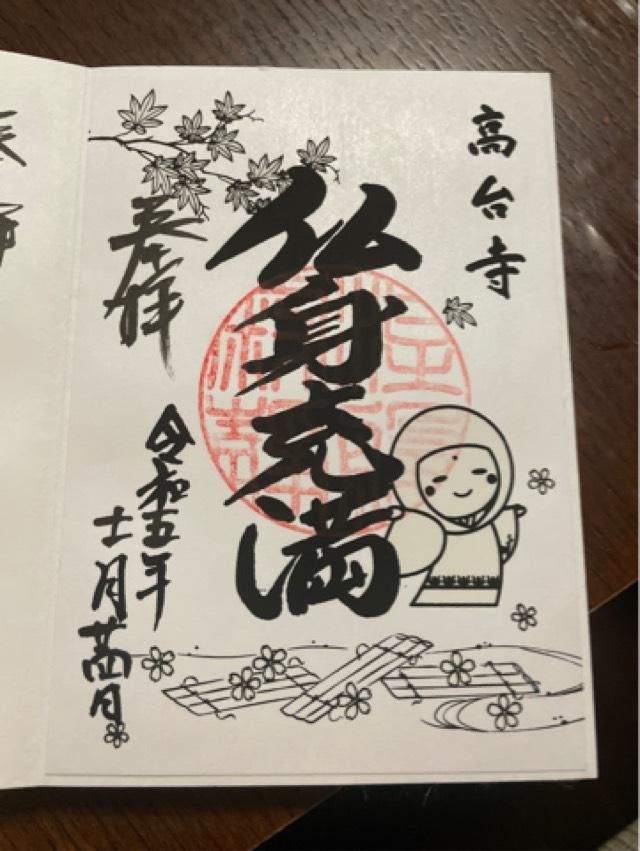 高台寺
仏身充満
奉拝
令和五年
十一月廿四日